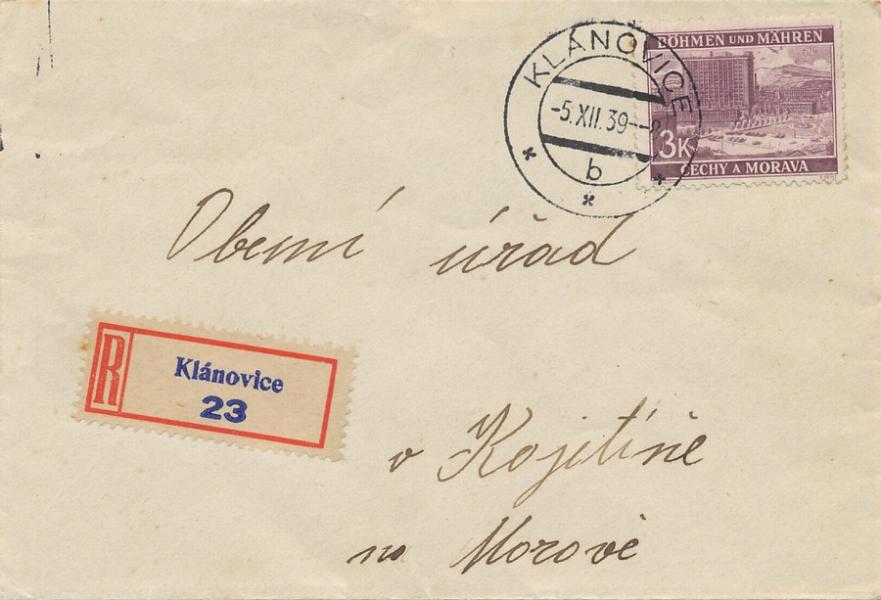 BÖHMEN UND MÄHREN
3K
ČECHY A MORAVA
KLÁNOVICE
-5.XII.39--8
b
Obecní úřad
R
Klánovice
23
v Kojetíně
na Moravě